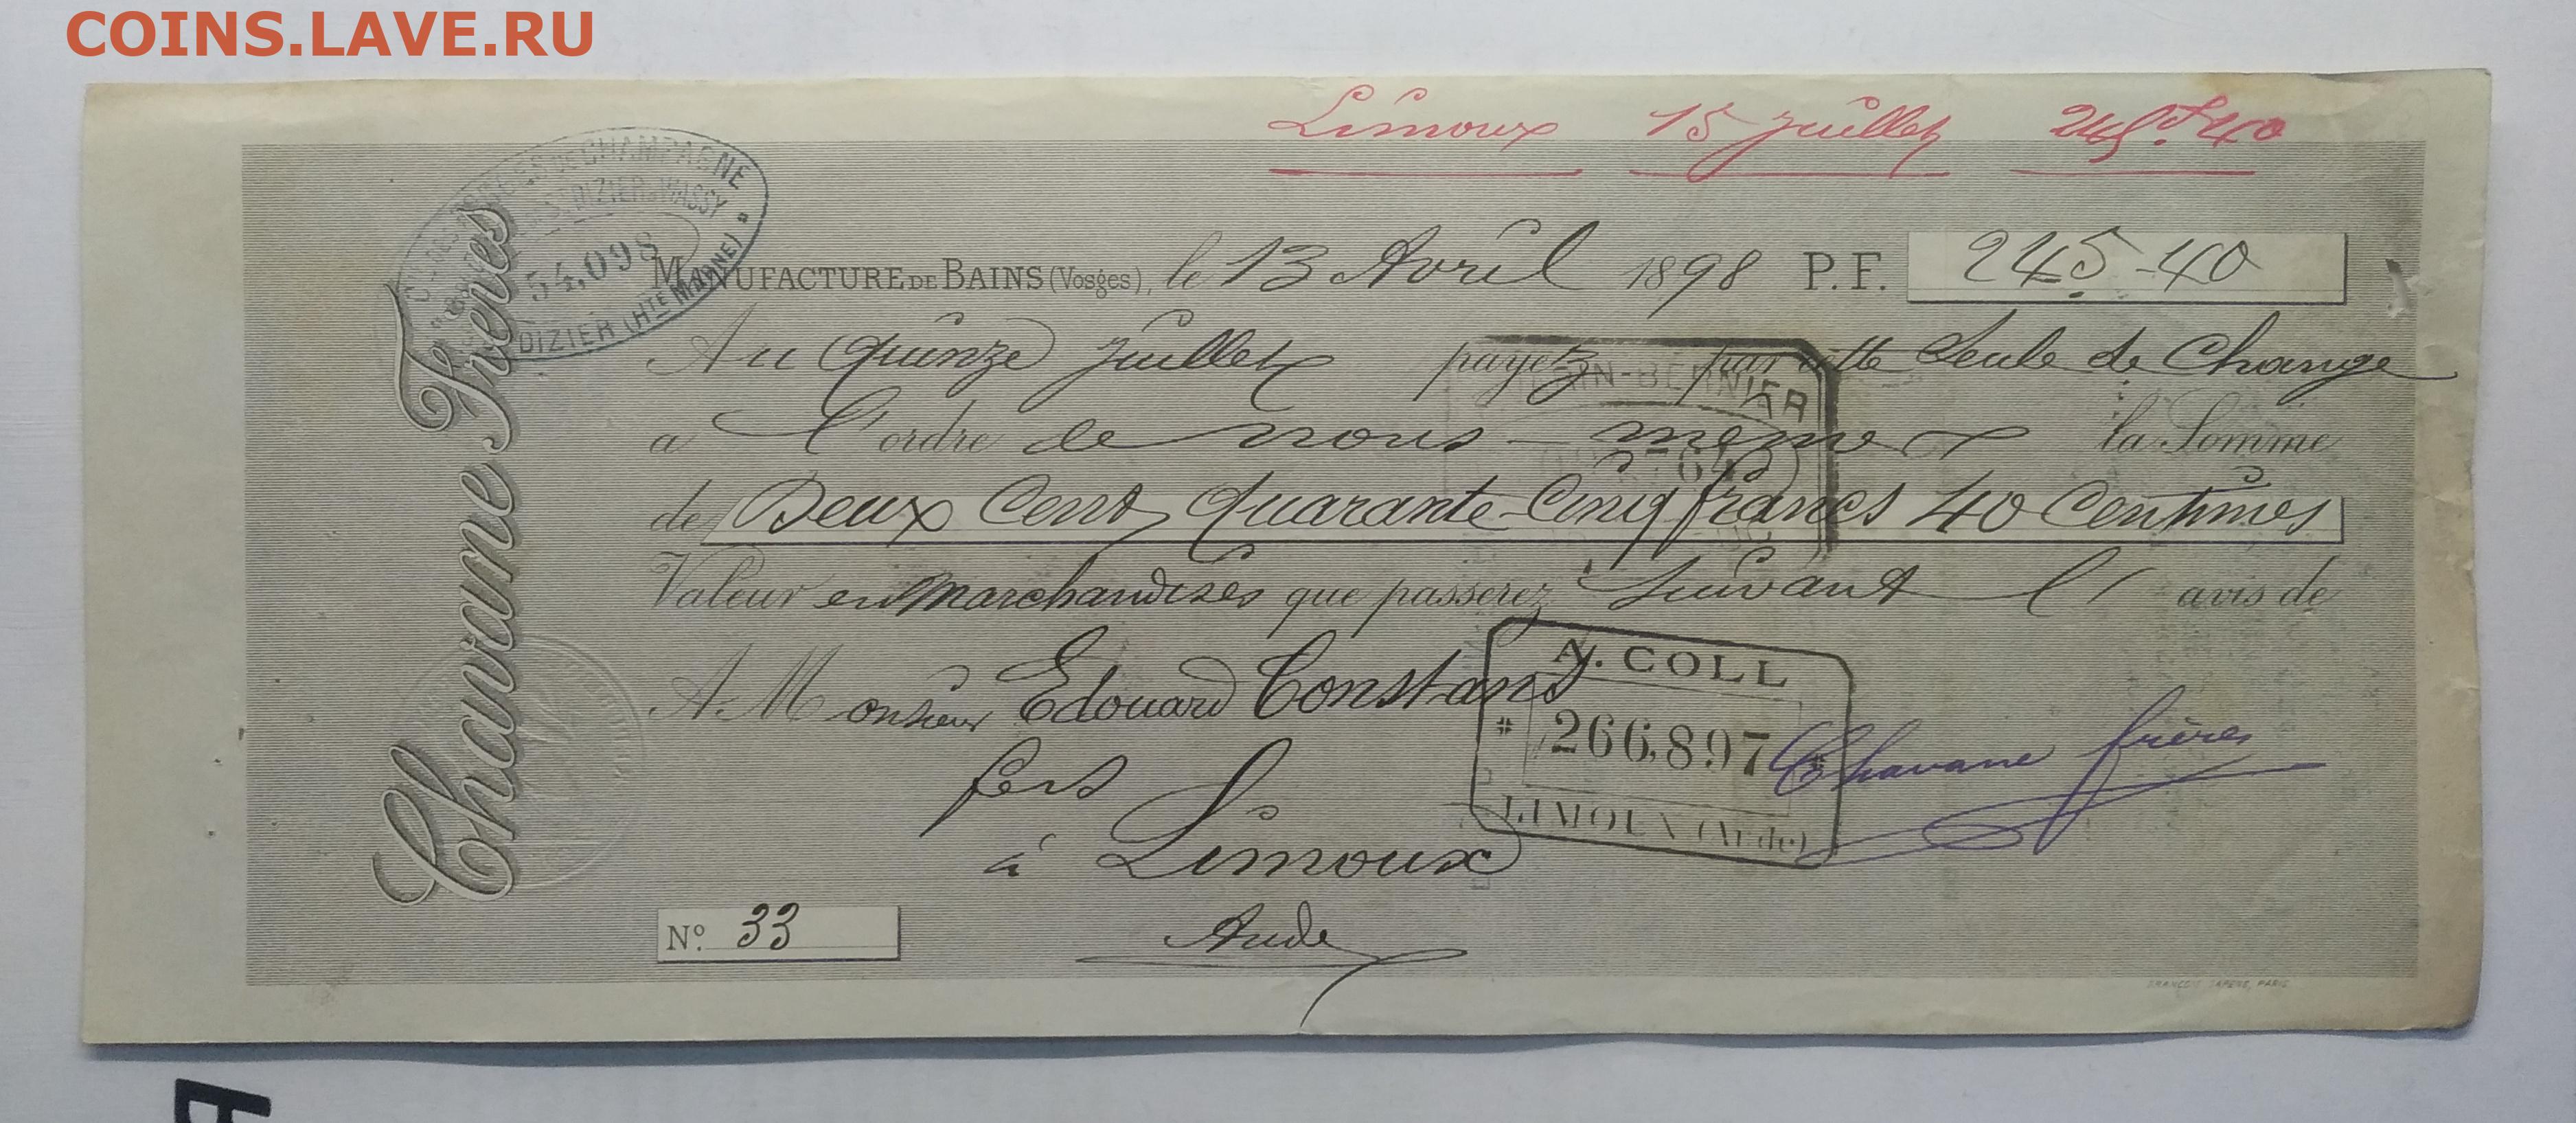 COINS.LAVE.RU
Limoux 15 Juillet 245f 40
DE CHAMPAGNE
ST DIZIER & WASSY
54,098
DIZIER (HTE MARNE)
Chavane Frères
MANUFACTURE DE BAINS (Vosges), le 13 Avril 1898 P.F. 245-40
Au quinze Juillet payez par cette Seule de Change
a l'ordre de nous-meme la Somme
de Deux Cent Quarante Cinq francs 40 Centimes
Valeur en Marchandises que passerez Suivant l' avis de
A Monsieur Edouard Constans
fers
à Limoux
Aude
A. COLL
266,897
LIMOUX (Aude)
Chavane frères
No. 33
PARIS